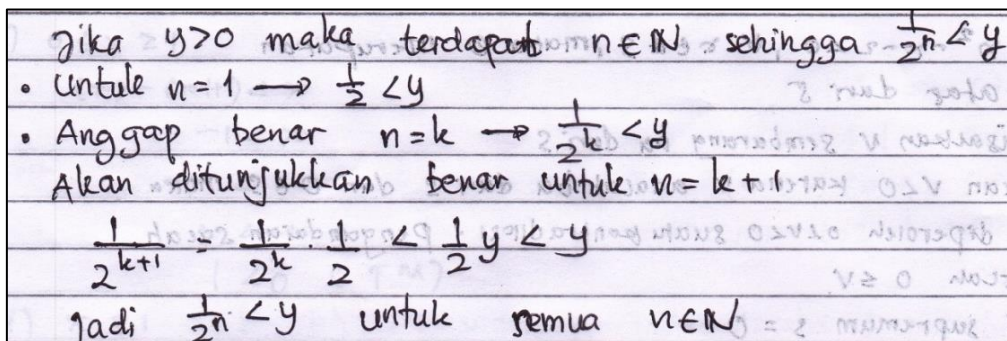 Jika y>0 maka terdapat n ∈ N sehingga 1/2ⁿ < y
• Untuk n=1 → 1/2 < y
• Anggap benar n=k → 1/2ᵏ < y
Akan ditunjukkan benar untuk n=k+1
1/2ᵏ⁺¹ = 1/2ᵏ · 1/2 < 1/2 y < y
Jadi 1/2ⁿ < y untuk semua n∈N